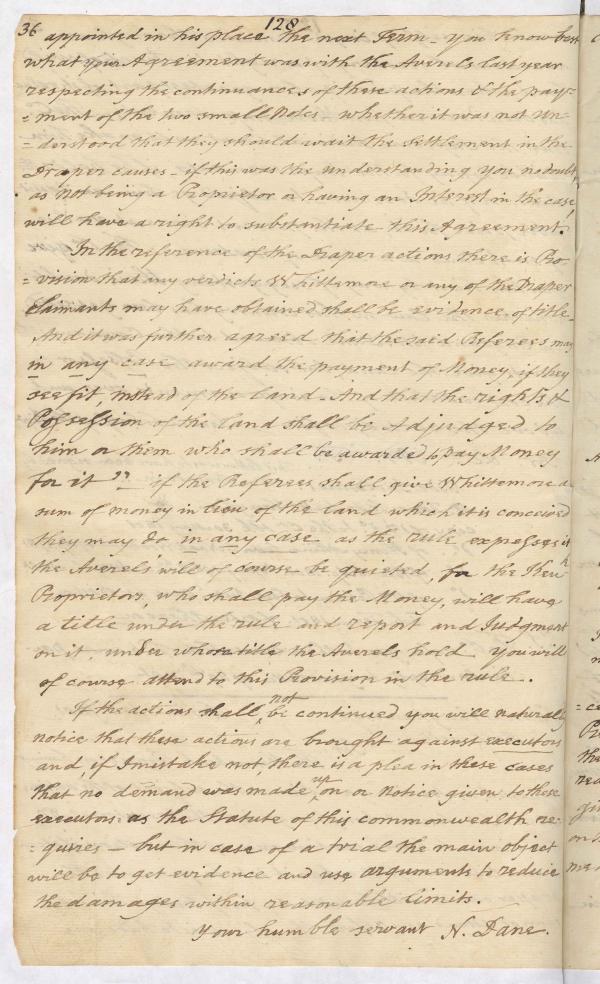 36 128
appointed in his place the next Term – you know best
what your Agreement was with the Averels last year
respecting the continuances of these actions & the pay=
=ment of the two small Notes – whether it was not un-
=derstood that they should wait the settlement in the
Draper causes – if this was the understanding you no doubt,
as not being a Proprietor or having an Interest in the case,
will have a right to substantiate this Agreement.
In the reference of the Draper actions there is Pro
=vision that any verdicts Whittemore or any of the Draper
Claimants may have obtained shall be evidence of title –
And it was further agreed that the said Referees may
in any case award the payment of Money, if they
see fit, instead of the land. And that the rights &
Possession of the land shall be Adjudged to
him or them who shall be awarded to pay Money
for it" – if the Referees shall give Whittemore a
sum of money in lieu of the land which it is conceived
they may do in any case as the rule expresses it
the Averels will of course be quieted, for the
Proprietors, who shall pay the Money, will have
a title under the rule and report and Judgment
on it, under whose title the Averels hold you will
of course attend to this Provision in the rule.
If the actions shall not be continued you will naturally
notice that these actions are brought against executors
and, if I mistake not, there is a plea in these cases
that no demand was made upon or Notice given to these
executors as the Statute of this commonwealth re-
=quires – but in case of a trial the main object
will be to get evidence and use arguments to reduce
the damages within reasonable limits.
Your humble servant N. Dane.